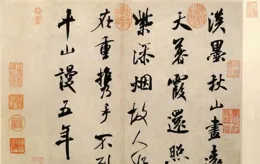 淡墨秋山畫遠
天暮霞還照
紫添烟故人好
在重携手不到
平山漫五年